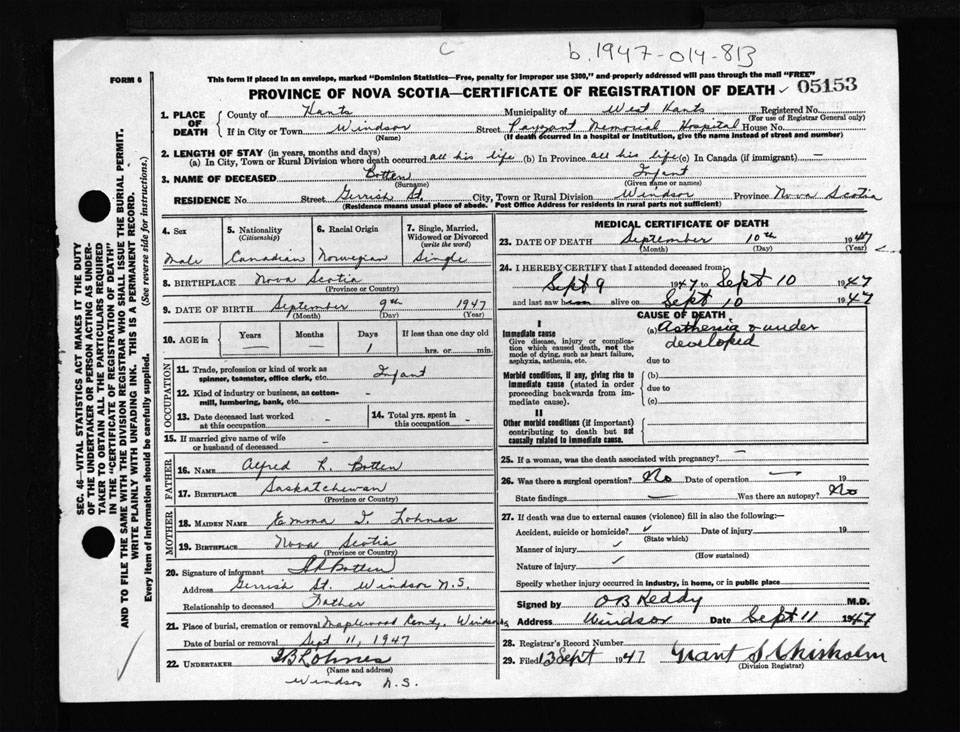 C b.1947-014-813
FORM 6
This form if placed in an envelope, marked "Dominion Statistics—Free, penalty for improper use $300," and properly addressed will pass through the mail "FREE"
PROVINCE OF NOVA SCOTIA—CERTIFICATE OF REGISTRATION OF DEATH 05153
1. PLACE OF DEATH County of Hants Municipality of West Hants Registered No.
(For use of Registrar General only)
If in City or Town Windsor Street Payzant Memorial Hospital House No.
(Name) (If death occurred in a hospital or institution, give the name instead of street and number)
2. LENGTH OF STAY (in years, months and days)
(a) In City, Town or Rural Division where death occurred all his life (b) In Province all his life (c) In Canada (if immigrant) —
3. NAME OF DECEASED Botten Infant
(Surname) (Given name or names)
RESIDENCE No. Street Gerrish St. City, Town or Rural Division Windsor Province Nova Scotia
(Residence means usual place of abode. Post Office Address for residents in rural parts not sufficient)
4. Sex Male
5. Nationality (Citizenship) Canadian
6. Racial Origin Norwegian
7. Single, Married, Widowed or Divorced (write the word) Single
8. BIRTHPLACE Nova Scotia
(Province or Country)
9. DATE OF BIRTH September 9th 1947
(Month) (Day) (Year)
10. AGE in Years — Months — Days 1 If less than one day old hrs. or min.
OCCUPATION
11. Trade, profession or kind of work as spinner, teamster, office clerk, etc. Infant
12. Kind of industry or business, as cotton-mill, lumbering, bank, etc. -
13. Date deceased last worked at this occupation -
14. Total yrs. spent in this occupation -
15. If married give name of wife or husband of deceased -
FATHER
16. NAME Alfred R. Botten
17. BIRTHPLACE Saskatchewan
(Province or Country)
MOTHER
18. MAIDEN NAME Emma I. Lohnes
19. BIRTHPLACE Nova Scotia
(Province or Country)
20. Signature of informant Botten
Address Gerrish St. Windsor N.S.
Relationship to deceased Father
21. Place of burial, cremation or removal Maplewood Windsor
Date of burial or removal Sept 11, 1947
22. UNDERTAKER Lohnes
(Name and address)
Windsor N.S.
MEDICAL CERTIFICATE OF DEATH
23. DATE OF DEATH September 10th 1947
(Month) (Day) (Year)
24. I HEREBY CERTIFY that I attended deceased from:
Sept 9 1947 to Sept 10 1947
and last saw alive on Sept 10 1947
CAUSE OF DEATH
I
Immediate cause
Give disease, injury or complication which caused death, not the mode of dying, such as heart failure, asphyxia, asthenia, etc.
(a) Asthenia & under
developed
due to
Morbid conditions, if any, giving rise to immediate cause (stated in order proceeding backwards from immediate cause).
(b)
due to
(c)
II
Other morbid conditions (if important) contributing to death but not causally related to immediate cause.
25. If a woman, was the death associated with pregnancy? —
26. Was there a surgical operation? No Date of operation — 19
State findings — Was there an autopsy? No
27. If death was due to external causes (violence) fill in also the following:—
Accident, suicide or homicide? Date of injury 19
(State which)
Manner of injury
(How sustained)
Nature of injury
Specify whether injury occurred in industry, in home, or in public place
Signed by O B Keddy M.D.
Address Windsor Date Sept 11 1947
28. Registrar's Record Number
29. Filed 13 Sept 1947 Grant S. Chisholm
(Division Registrar)
SEC. 46—VITAL STATISTICS ACT MAKES IT THE DUTY
OF THE UNDERTAKER OR PERSON ACTING AS UNDER-
TAKER TO OBTAIN ALL THE PARTICULARS REQUIRED
IN THE "CERTIFICATE OF REGISTRATION OF DEATH"
AND TO FILE THE SAME WITH THE DIVISION REGISTRAR WHO SHALL ISSUE THE BURIAL PERMIT.
WRITE PLAINLY WITH UNFADING INK. THIS IS A PERMANENT RECORD.
Every item of information should be carefully supplied. (See reverse side for instructions.)